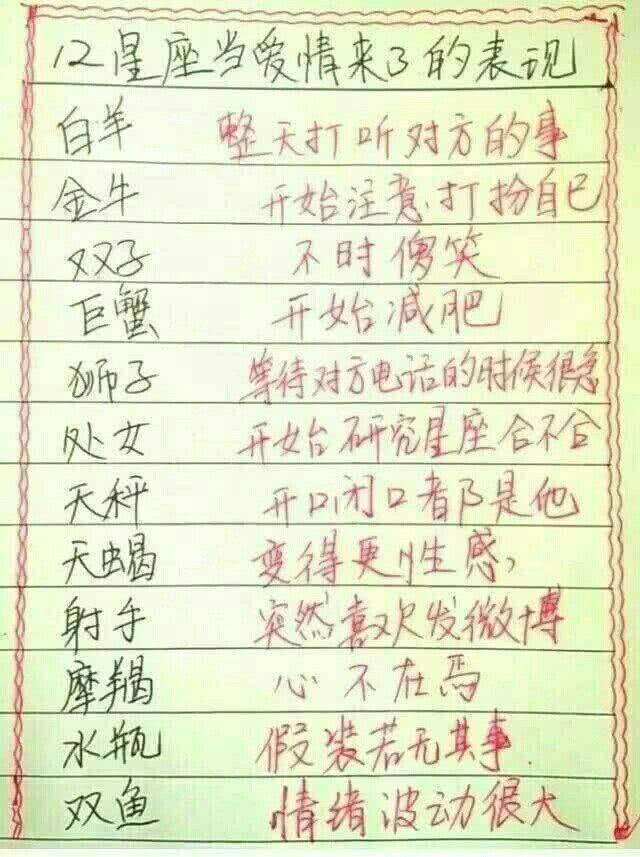 12星座当爱情来了的表现
白羊 整天打听对方的事
金牛 开始注意打扮自己
双子 不时傻笑
巨蟹 开始减肥
狮子 等待对方电话的时候很急
处女 开始研究星座合不合
天秤 开口闭口都是他
天蝎 变得更性感,
射手 突然喜欢发微博
摩羯 心不在焉
水瓶 假装若无其事.
双鱼 情绪波动很大